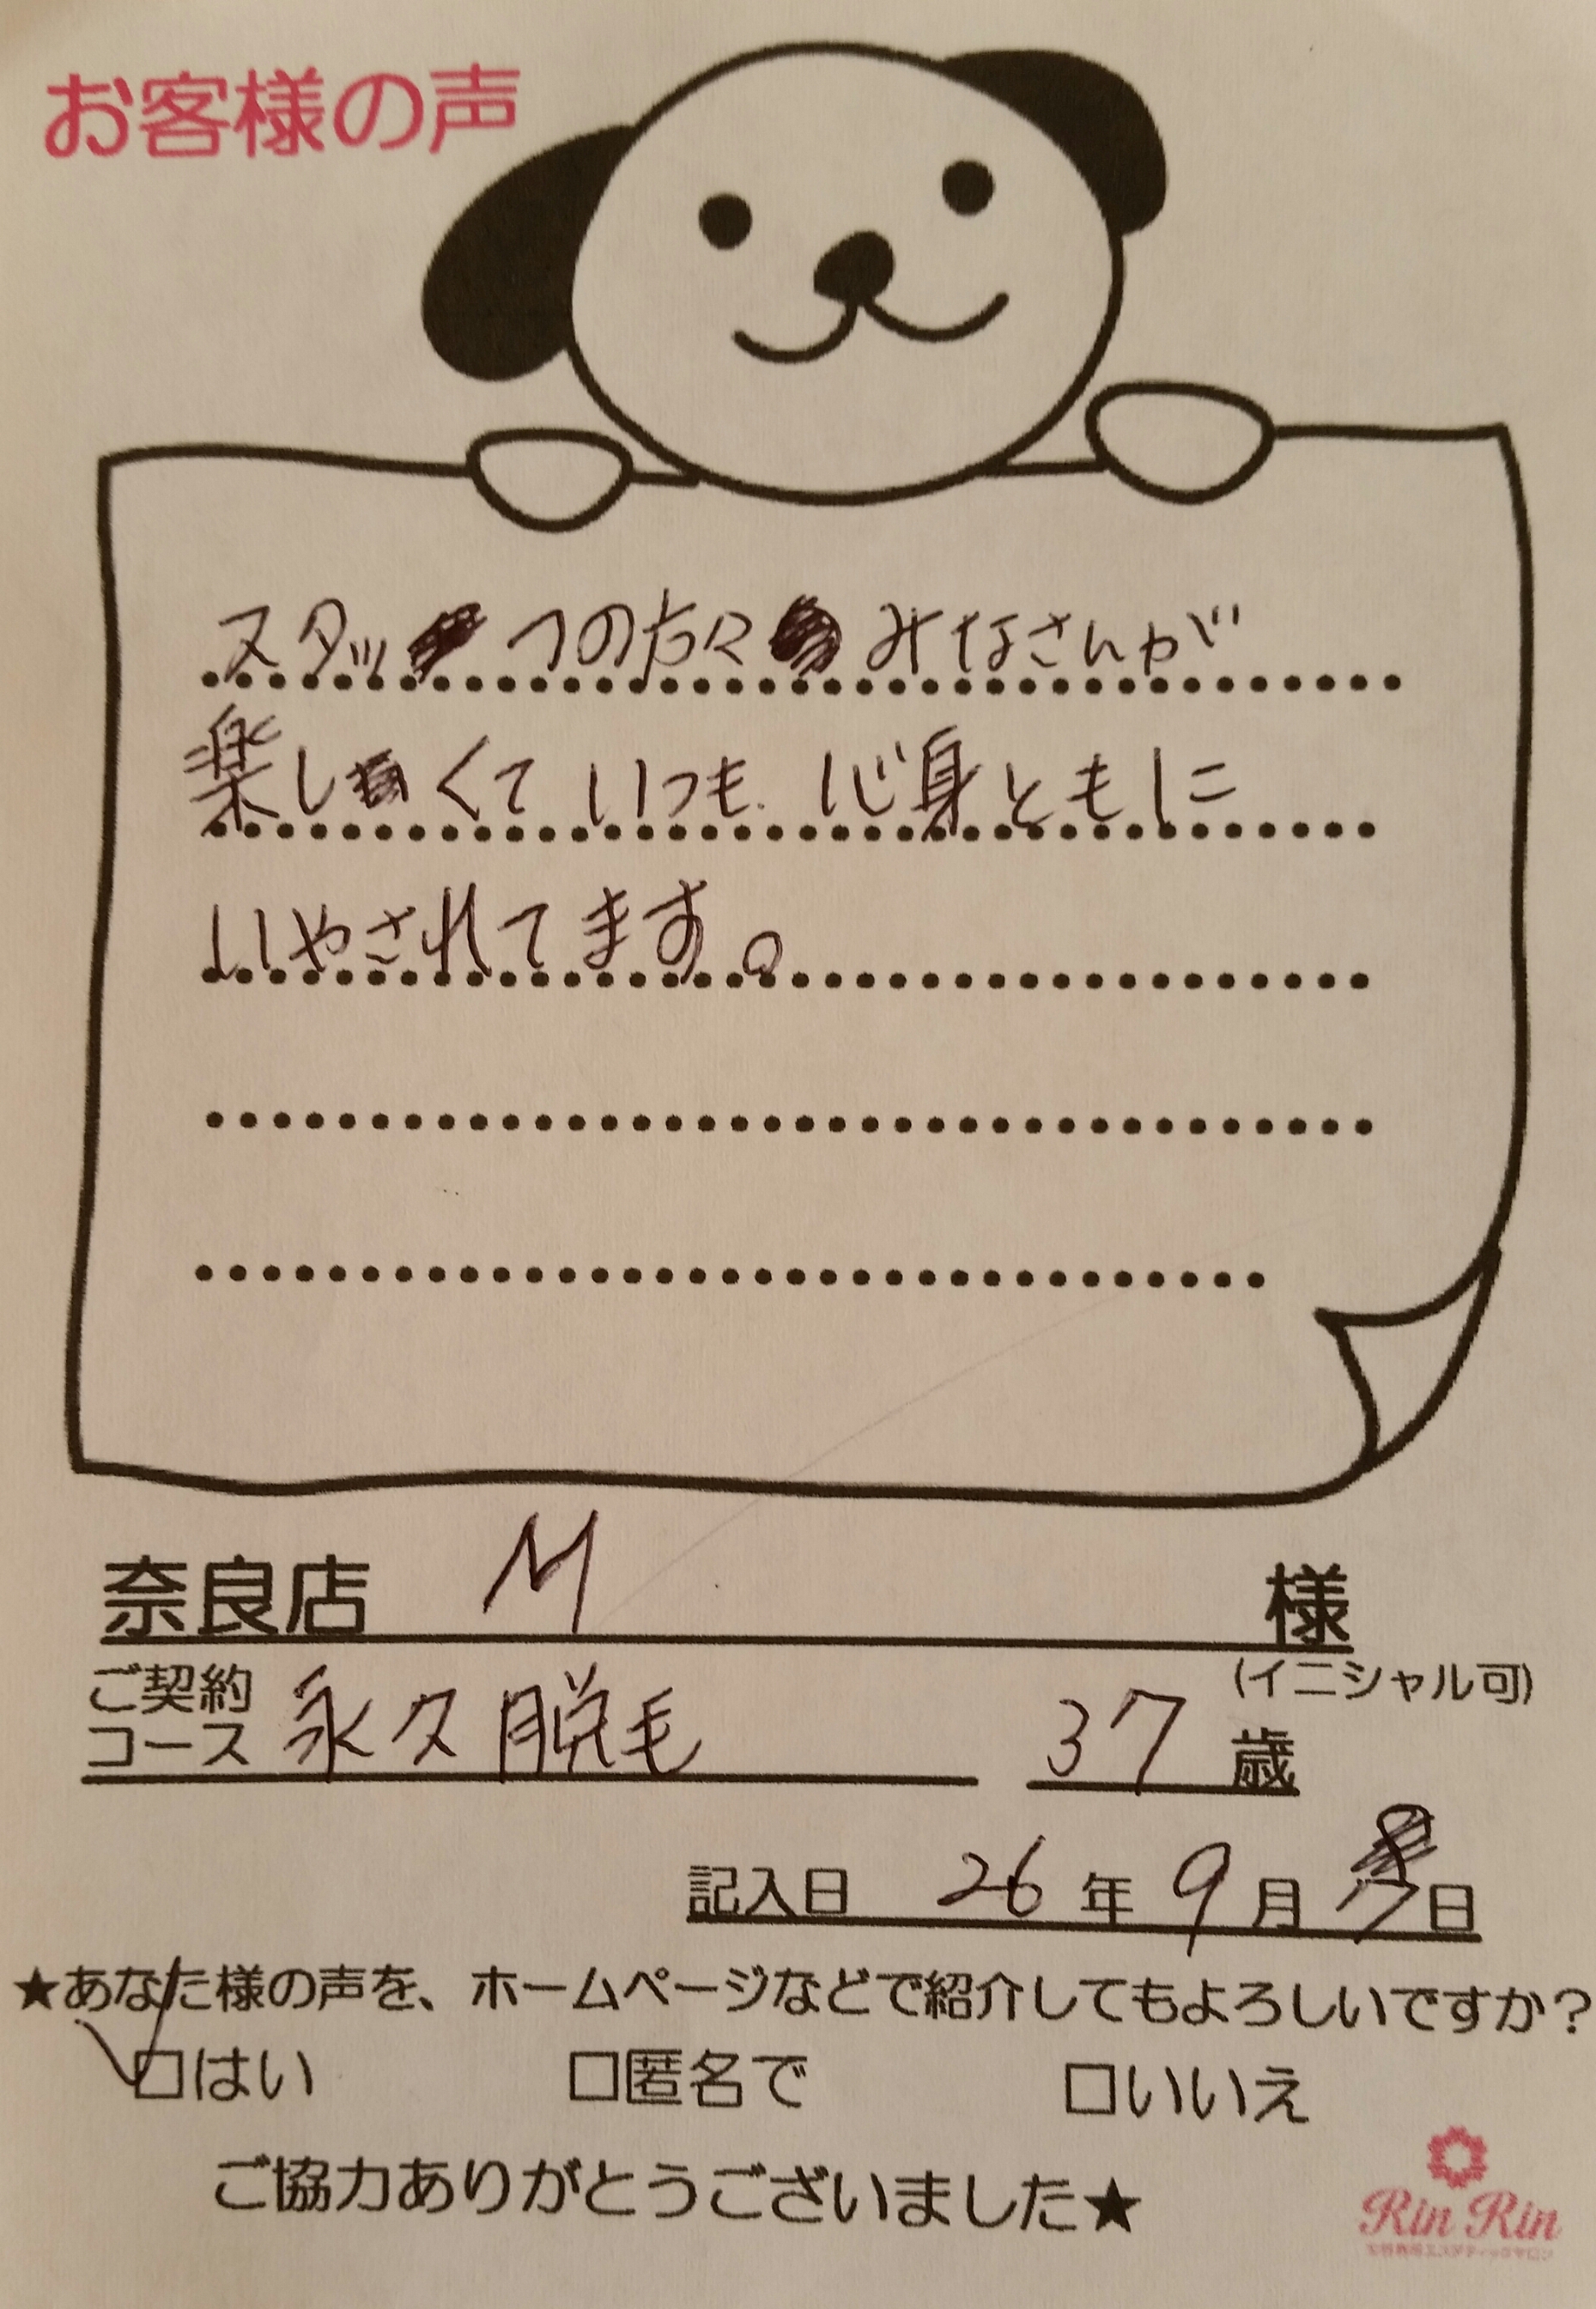 お客様の声
スタッフの方々みなさんが
楽しくていつも心身ともに
いやされてます。
奈良店 M 様
(イニシャル可)
ご契約コース 永久脱毛 37歳
記入日 26年9月7日
★あなた様の声を、ホームページなどで紹介してもよろしいですか?
□はい □匿名で □いいえ
ご協力ありがとうございました★
Rin Rin